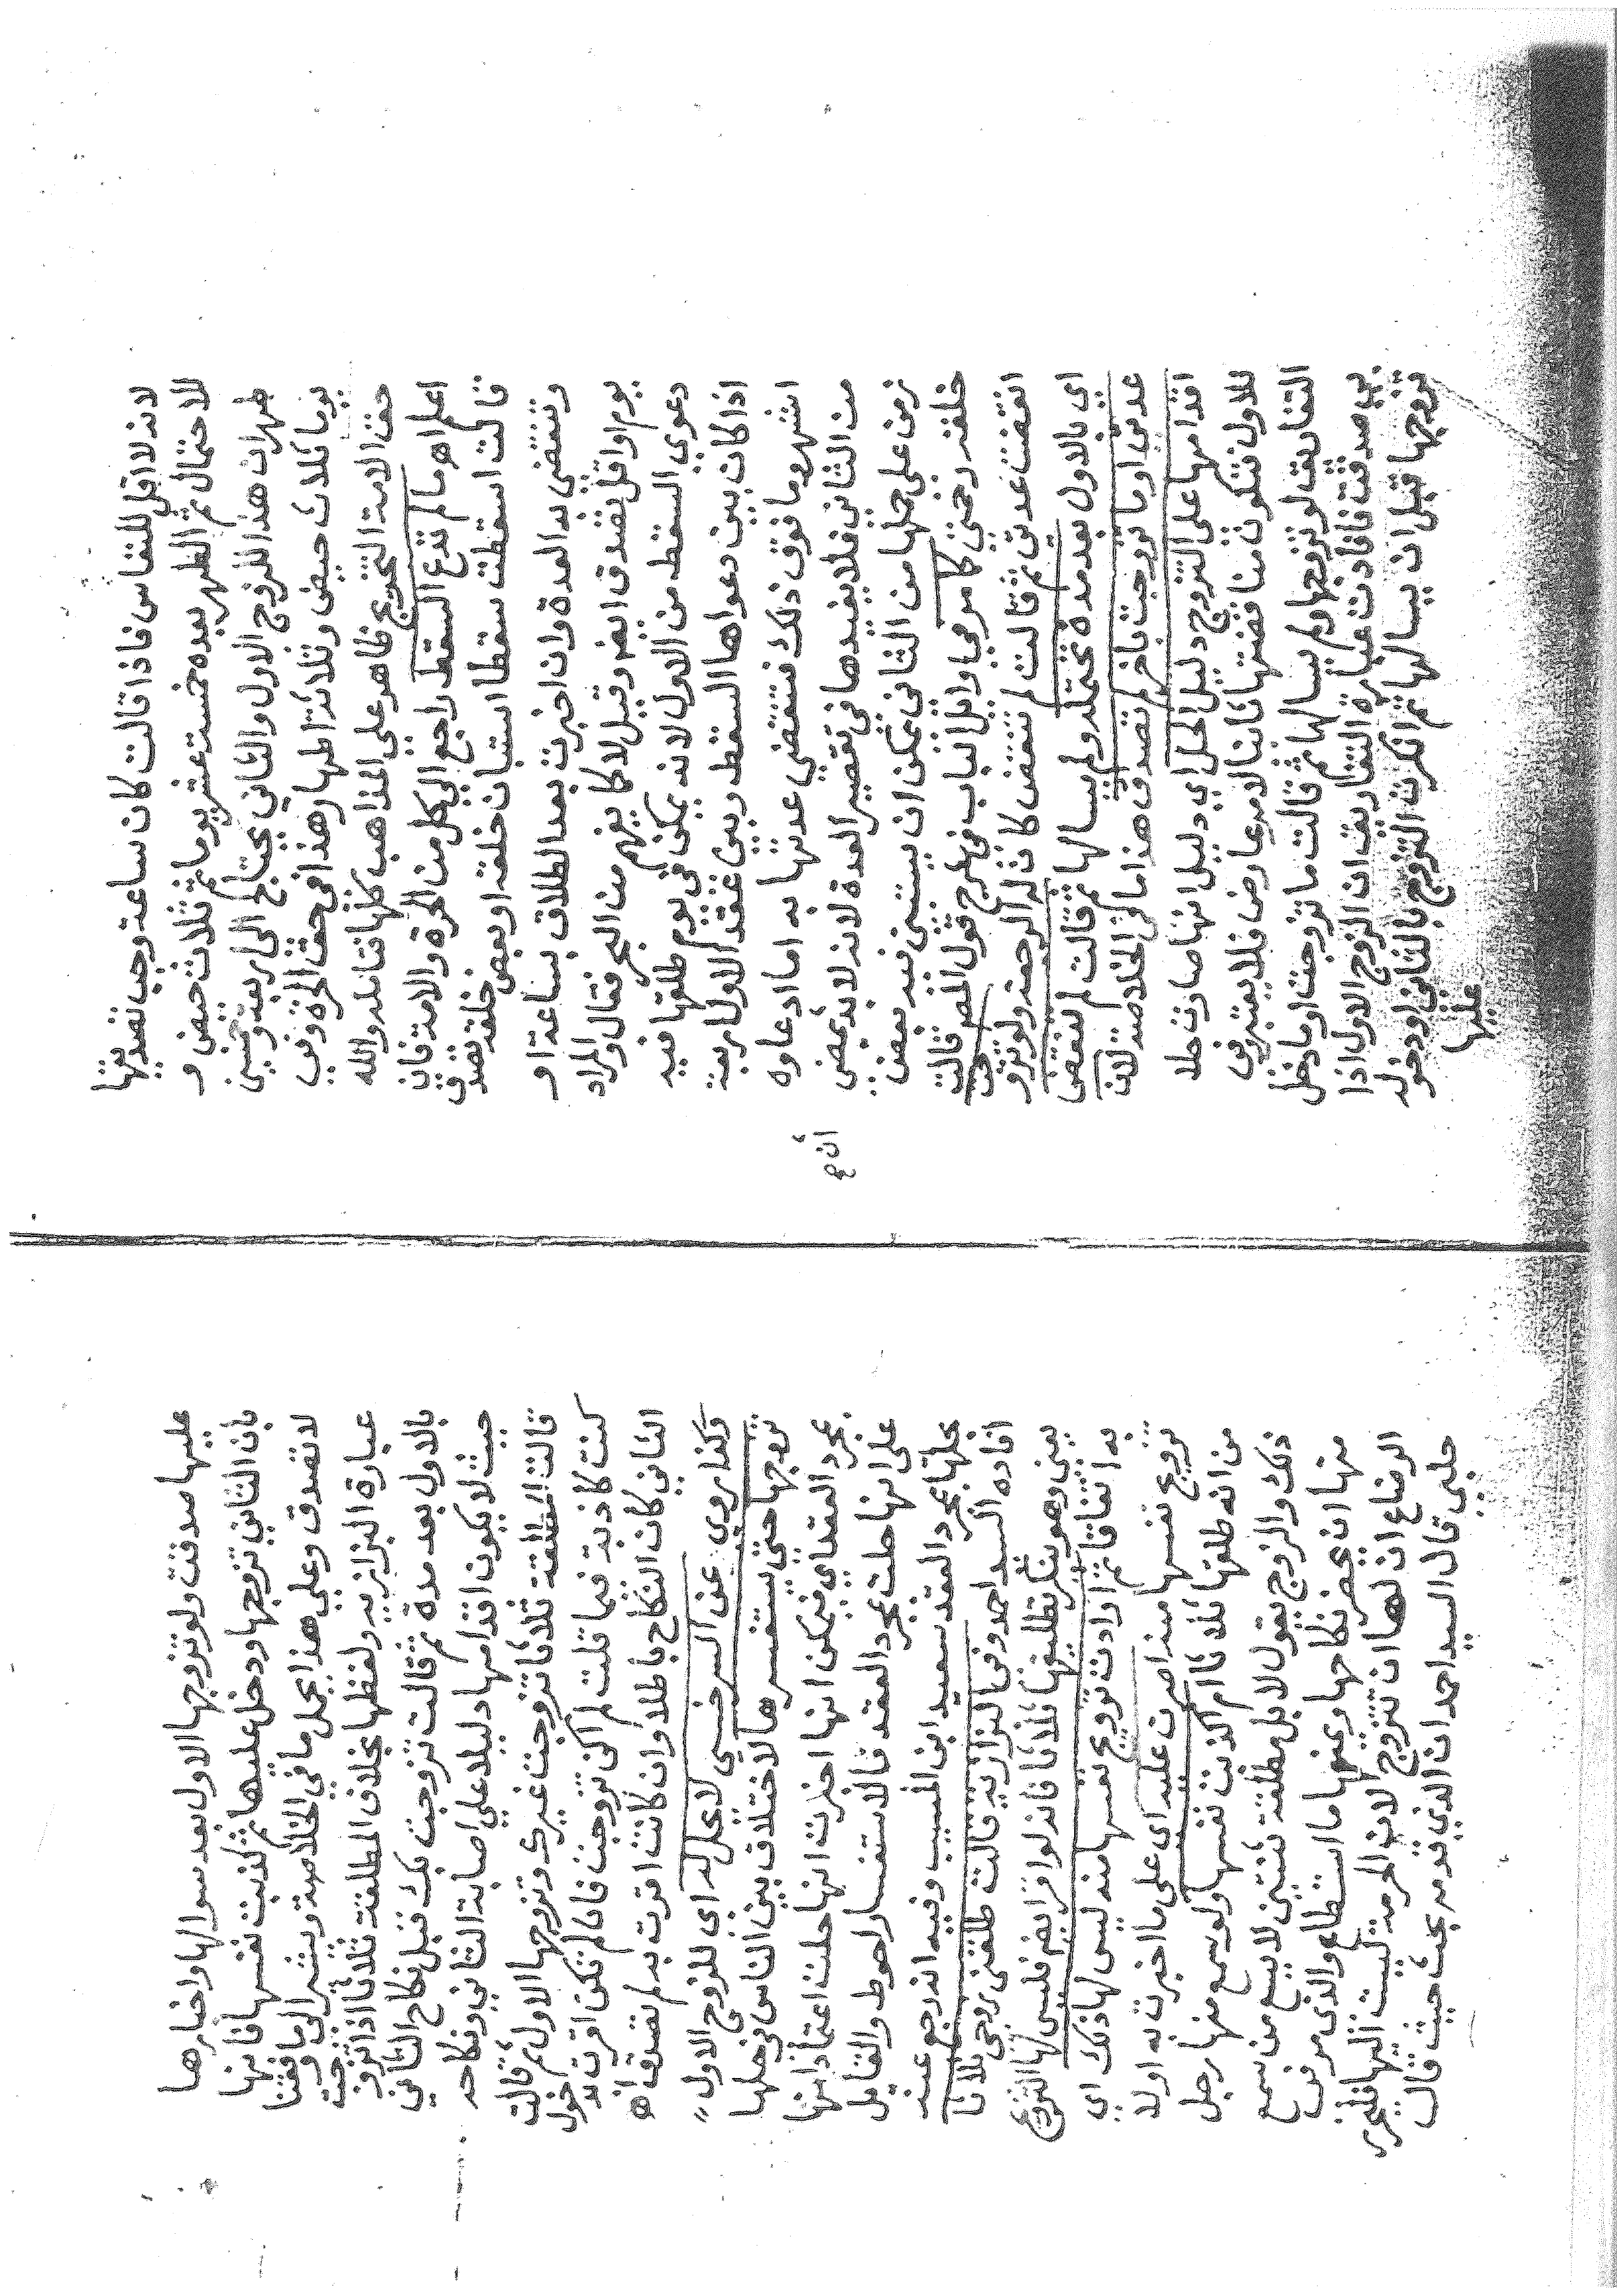 لانه لا اقل للنفاس فاذا قالت كان ساعة وجب تصديقها
للاحتمال ثم الطهر بعده خمسة عشر يوما ثم ثلاث حيض و
طهران هذا للزوج الاول والثاني يحتاج الى اربعة وخمسين
يوما ثلاث حيض وثلاثة اطهار وهذا في حق الحرة وفي
حق الامة التخريج ظاهر على المذاهب كلها فتامله والله
اعلم اهـ مالم تدع السقط راجع الى كل من الحرة والامة فان
قالت اسقطت سقطا استبان خلقه او بعض خلقه تصدق
وتنقضي به العدة وان اخبرت بعد الطلاق بساعة او
يوم او اقل تصدق ايضر وقيل لا كما يفهم من البحر فقال والمراد
دعوى السقط من الاول لانه يمكن في يوم طلقها فيه
اذا كان بين دعواها السقط وبين عقد الاول اربعة
اشهر وما فوق ذلك فتنقضي عدتها به اما ادعاوه
من الثاني فلا يفيدها في تقصير العدة لانه لابد يمضي
زمن على حملها من الثاني يمكن ان يستبين فيه بعض
خلقه رحمتي كما مر مجي واول الباب في شرح قول المص قالت
انقضت عدتي ثم قالت لم تنقض كان له الرجعة ولو تزوجت
اي بالاول بعد مدة تحتمله ولم يسالها ثم قالت لم تنقض
عدتي او ما تزوجت باخر لم تصدق هذا ما في الخلاصة لان
اقدامها على التزوج دليل الحل اي دليل انها صارت حلا
للاول فتكون مناقضتها ثانيا لامر عارض فلا يعتبر وفي
التفاريق لو تزوجها ولم يسالها ثم قالت ما تزوجت او ما دخل
بي صدقت فافادت عبارة التفاريق ان الزوج الاول اذا
تزوجها قبل ان يسالها ثم انكرت التزوج بالثاني او دخوله
عليها
أن ع
عليها صدقت ولو تزوجها الاول بعد سوالها واخبارها
بان الثاني تزوجها ودخل عليها ثم كذبت نفسها فانها
لا تصدق وعلى هذا يحمل ما في الخلاصة ويشير الى ما وفقنا
عبارة البزازية ولفظها بخلاف المطلقة ثلاثا اذا تزوجت
بالاول بعد مدة ثم قالت تزوجت بك قبل نكاح الثاني
حيث لا يكون اقدامها دليلا على اصابة الثاني ونكاحه
قالت المطلقة ثلاثا تزوجت غيرك وتزوجها الاول ثم قالت
كنت كاذبة فيما قلت لم اكن تزوجت فان لم تكن اقرت بدخول
الثاني كان النكاح باطلا وان كانت اقرت به لم تصدق اهـ
وكذا روي عن السرخسي لا يحل له اي للزوج الاول
تزوجها حتى يستفسرها لاختلاف بين الناس في حلها
بمجرد العقد اي فيمكن انها اخبرت انها حلت اعتمادا منها
على انها حلت بمجرد العقد فالاستفسار احوط والقايل
بحلها بمجرد العقد سعيد ابن المسيب وفيه انه رجع عنه
افاده السيد احمد وفي البزازية قالت طلقني زوجي ثلاثا
يعني وهو ينكر تطليقها ثلاثا فانه لو اقر ايضر فليس لها التزوج
به اتفاقا ثم ارادت تزويج نفسها منه ليس لها ذلك اي
تزويج نفسها منه اصرت عليه اي على ما اخبرت به او لا
من انه طلقها ثلاثا ام كذبت نفسها ولو سمع منها رجل
ذلك والزوج يقول لا بل مطلقة ثنتين لا يسع من سمع
منها ان يحضر نكاحها ويمنعها ما استطاع والذي مر في
الرضاع ان لها ان تتزوج لان الحرمة ليست اليها فليحرر
حلبي قال السيد احمد ان الذي قدمه بحث حيث قال